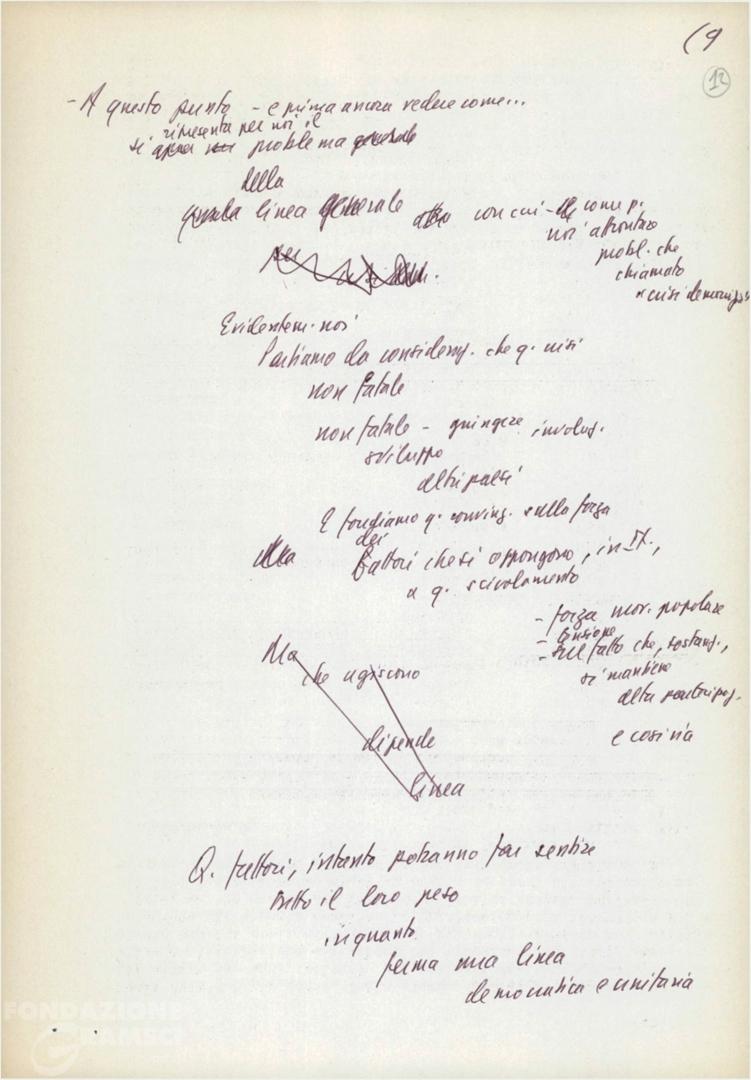 (9
12
- A questo punto - e prima ancora vedere come...
ripresenta per noi il
si problema generale
della
linea generale con cui - come p.
noi affrontare
probl. che
chiamato
Evidentem. noi
Partiamo da consideraz. che q. crisi
non fatale
non fatale - giungere involuz.
sviluppo
altri paesi
E fondiamo q. convinz. sulla forza
dei
fattori che si oppongono, in IT.,
a q. scivolamento
- forza mov. popolare
- tensione
- sul fatto che, sostanz.,
si mantiene
alta partecipaz.
e così via
Ma
che agiscono
dipende
linea
Q. fattori, intanto potranno far sentire
tutto il loro peso
in quanto
ferma una linea
democratica e unitaria
FONDAZIONE
GRAMSCI